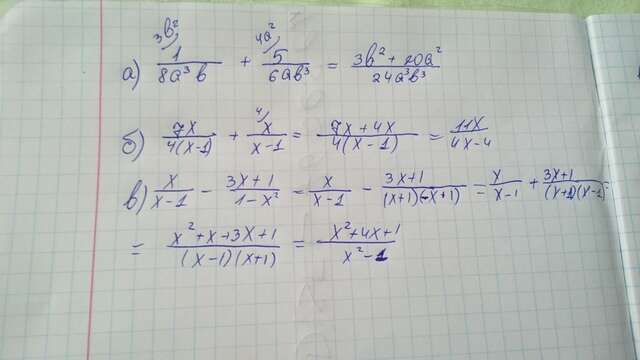 а) 3b²⟋ 1/(8a³b) + 4a²⟋ 5/(6ab³) = (3b² + 20a²)/(24a³b³)
б) 7x/(4(x-1)) + 4⟋ x/(x-1) = (7x + 4x)/(4(x-1)) = 11x/(4x-4)
в) x/(x-1) - (3x+1)/(1-x²) = x/(x-1) - (3x+1)/((x+1)(-x+1)) = x/(x-1) + (3x+1)/((x+1)(x-1)) =
= (x²+x+3x+1)/((x-1)(x+1)) = (x²+4x+1)/(x²-1)